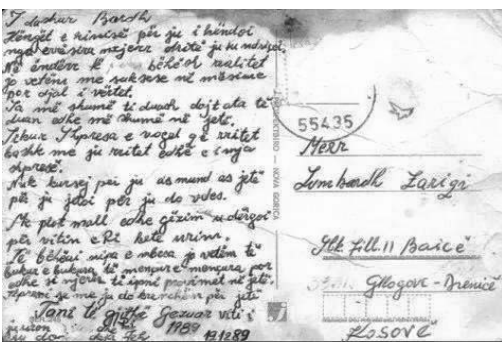 I dashur Bardh
Këngët e rinisë për ju i këndoi
nga errësira nxjerr dritë ju ku ndriçoi
Në ëndërr k bëhësh realitet
jo vetëm me suksese në mësime
por djal i vërtet.
Sa më shumë ti duash dojt ata të
duan edhe më shumë në jetë.
Sikur Shpresa e vogel që rritet
bashk me ju rritet edhe e imja
shpresë.
Nuk kursej për ju as mund as jetë
për ju jetoi për ju do vdes.
Me plot mall edhe gëzim u dërgoi
për vitin e Ri këtë urim.
Të bëhëni nipa e mbesa jo vetëm të
bukur e bukura të mençure mençura por
edhe si njerëz ti ipni provimet në jetë.
Shpresoi se me ju do krenohëm për jetë
Tani të gjithë Gezuar viti i
1989
19.1289
55435
Merr
Lumbardh Zariqi
NOVA GORICA
Fshk Fill. 11 Baicë
Gllogovc - Drenicë
Kosovë